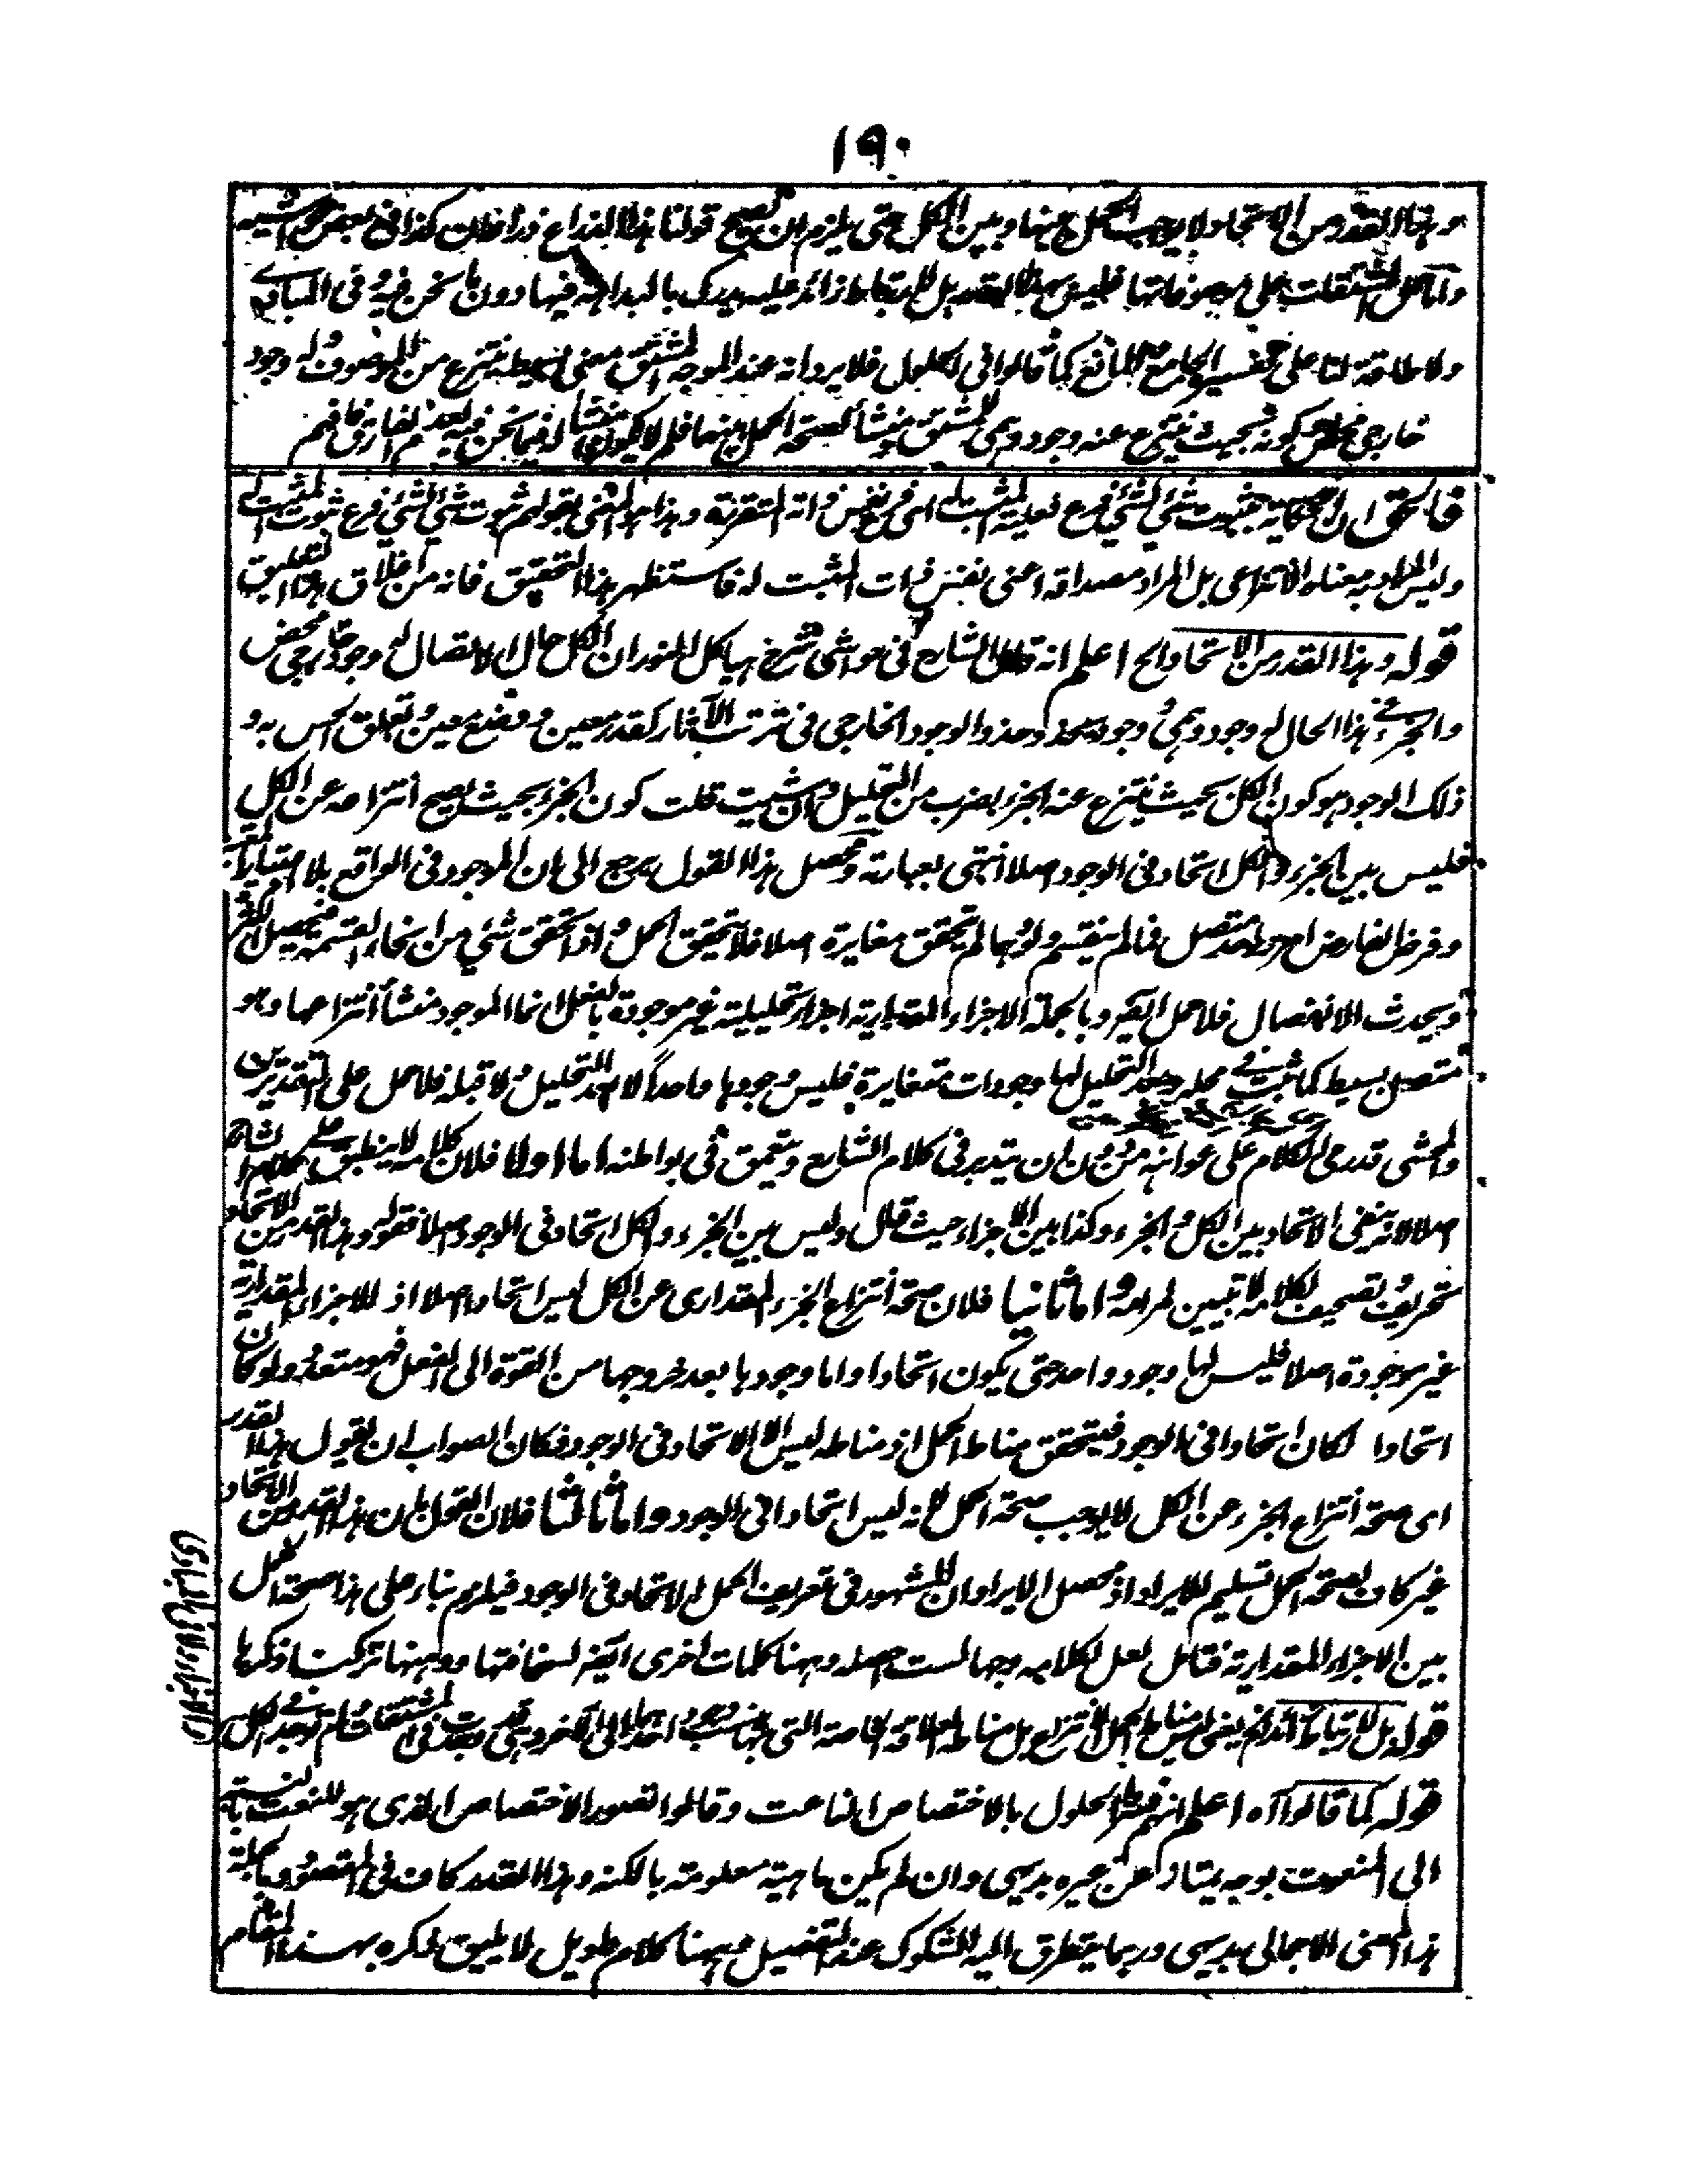 ١٩٠
وهذا القدر من الاتحاد لا يوجب الحمل بينها وبين الكل حتى يلزم ان يصح قولنا هذا الذراع ذراعان كذا في بعض الحواشي
واما حمل المشتقات على موصوفاتها فليس بهذا القدر بل لارتباط زائد عليه يدرك بالبداهة فيها دون ما نحن فيه وفي المبادي
ولا طاقة لنا على تفسير الجامع المانع كما قالوا في الحلول فلا يرد انه عند الموجه المشتق معنى بسيط ينتزع من الموصوف له وجود
خارجي محض كونه بحيث ينتزع عنه وجود وهمي للمشتق منشأ لصحة الحمل بينهما فلم لا يكون منشأ له فيما نحن فيه لعدم الفارق فافهم
فالحق ان الحكاية بثبوت شئ لشئ فرع فعلية المثبت له اى فرع نفس ذاته المتقررة وهذا هو المعنى بقولهم ثبوت شئ لشئ فرع ثبوت المثبت له
وليس المراد به معناه الانتزاعى بل المراد مصداقه اعنى نفس ذات المثبت له فاستظهر بهذا التحقيق فانه من اخلاق هذا التعليق
قوله وهذا القدر من الاتحاد الخ اعلم انه قال الشارح فى حواشى شرح هياكل النور ان الكل حال الاتصال له وجود خارجى محض
والجزء فى هذا الحال له وجود وهمى وجود يحذو حذو الوجود الخارجى فى ترتب الآثار كقدر معين ووضع معين وتعلق الحس به و
ذلك الوجود هو كون الكل بحيث ينتزع عنه الجزء بضرب من التحليل وان شئت قلت كون الجزء بحيث يصح انتزاعه عن الكل
فليس بين الجزء والكل اتحاد فى الوجود اصلا انتهى بعبارته ومحصل هذا القول يرجع الى ان الموجود فى الواقع بلا اعتبار المعتبر
وفرض الفارض امر واحد متصل فما لم ينقسم ولو وهما لم يتحقق مغايرة اصلا فلا يتحقق الحمل واذا تحقق شئ من انحاء القسمة يحصل الكثرة
ويحدث الانفصال فلا حمل ايضه وبالجملة الاجزاء المقدارية اجزاء تحليلية غير موجودة بالفعل انما الموجود منشأ انتزاعها وهو
متصل بسيط كما ثبت فى محله وبعد التحليل لها وجودات متغايرة فليس وجودها واحداً لا بعد التحليل ولا قبله فلا حمل على التقديرين
والمحشى قدر حمى الكلام على عواهنه من دون ان يتدبر فى كلام الشارح ويتعمق فى بواطنه اما اولا فلان كلامه لا ينطبق على كلام الشارح
اصلا لانه ينفى الاتحاد بين الكل والجزء وكذا بين الاجزاء حيث قال وليس بين الجزء والكل اتحاد فى الوجود اصلا فقوله وهذا القدر من الاتحاد
تحريف وتصحيف لكلامه لا تبيين لمرامه واما ثانيا فلان صحة انتزاع الجزء المقدارى عن الكل ليس اتحادا اصلا اذ الاجزاء المقدارية
غير موجودة اصلا فليس لها وجود واحد حتى يكون اتحادا واما وجودها بعد خروجها من القوة الى الفعل فهو متعدد ولو كان
اتحادا لكان اتحادا فى الوجود فيتحقق مناط الحمل اذ مناطه ليس الا الاتحاد فى الوجود فكان الصواب ان يقول هذا القدر
اى صحة انتزاع الجزء عن الكل لا يوجب صحة الحمل لانه ليس اتحادا فى الوجود واما ثالثا فلان القول بان هذا القدر من الاتحاد
غير كاف لصحة الحمل تسليم للايراد اذ محصل الايراد ان المشهور فى تعريف الحمل الاتحاد فى الوجود فيلزم بناء على هذا صحة الحمل
بين الاجزاء المقدارية فتامل لعل لكلامه وجها لست احصله وههنا كلمات اخرى ايضه لسخافتها ووهنها تركت ذكرها
قوله بل لارتباط زائد الخ يعنى ليس مناط الحمل الانتزاع بل مناطه العلاقة الخاصة التى بها ينسب احدهما الى الآخر وهى قد وجدت فى المشتقات ولم توجد فى الكل
قوله كما قالوا آه اعلم انهم فسروا الحلول بالاختصاص الناعت وقالوا تصور الاختصاص الذى هو للنعت بالنسبة
الى المنعوت بوجه يمتاز عن غيره بديهى وان لم يكن ماهيته معلومة بالكنه وهذا القدر كاف فى المقصود وبالجملة
هذا المعنى الاجمالى بديهى وربما يتطرق اليه الشكوك عند التفصيل وههنا كلام طويل لا يليق ذكره بهذا المقام